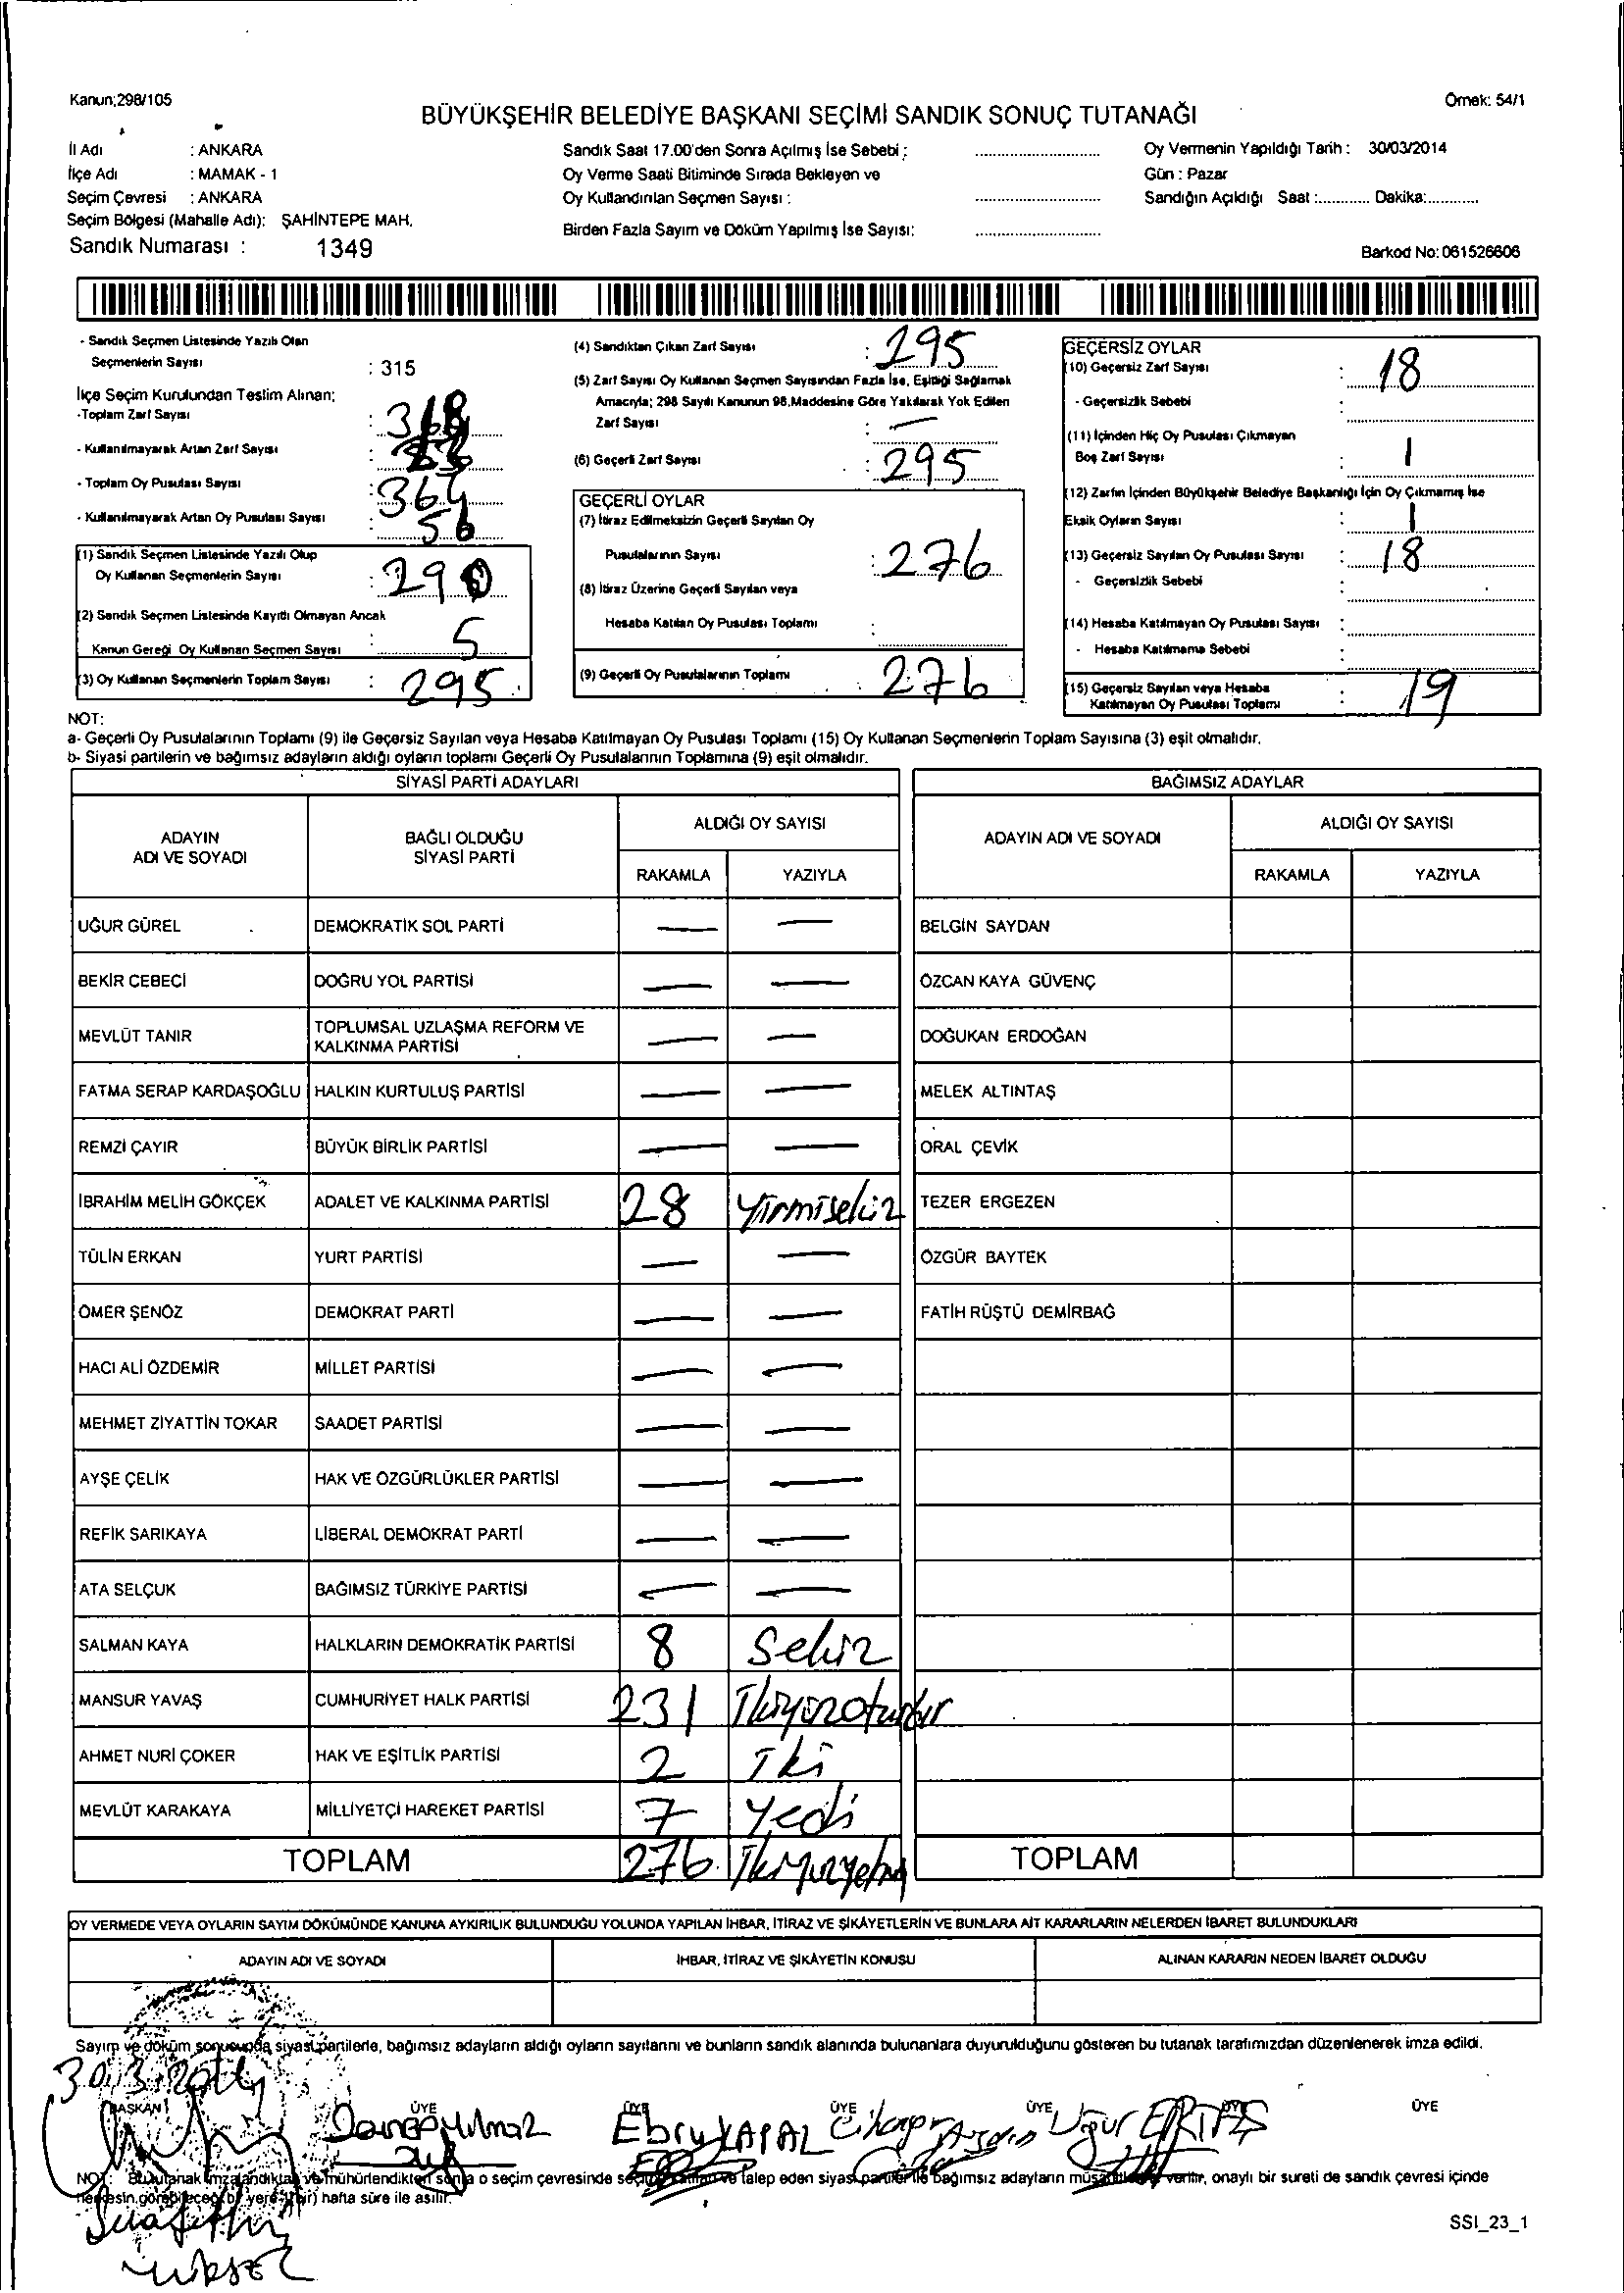 Kanun;298/105
Örnek: 54/1
BÜYÜKŞEHİR BELEDİYE BAŞKANI SEÇİMİ SANDIK SONUÇ TUTANAĞI
İl Adı : ANKARA
İlçe Adı : MAMAK - 1
Seçim Çevresi : ANKARA
Seçim Bölgesi (Mahalle Adı): ŞAHİNTEPE MAH.
Sandık Numarası : 1349
Sandık Saat 17.00'den Sonra Açılmış İse Sebebi :
Oy Verme Saati Bitiminde Sırada Bekleyen ve
Oy Kullandırılan Seçmen Sayısı :
Birden Fazla Sayım ve Döküm Yapılmış İse Sayısı:
Oy Vermenin Yapıldığı Tarih : 30/03/2014
Gün : Pazar
Sandığın Açıldığı Saat :............ Dakika:............
Barkod No: 061526606
- Sandık Seçmen Listesinde Yazılı Olan
Seçmenlerin Sayısı : 315
İlçe Seçim Kurulundan Teslim Alınan;
-Toplam Zarf Sayısı :
- Kullanılmayarak Artan Zarf Sayısı :
- Toplam Oy Pusulası Sayısı : 364
- Kullanılmayarak Artan Oy Pusulası Sayısı : 56
(1) Sandık Seçmen Listesinde Yazılı Olup
Oy Kullanan Seçmenlerin Sayısı : 290
(2) Sandık Seçmen Listesinde Kayıtlı Olmayan Ancak
Kanun Gereği Oy Kullanan Seçmen Sayısı : 5
(3) Oy Kullanan Seçmenlerin Toplam Sayısı : 295
(4) Sandıktan Çıkan Zarf Sayısı : 295
(5) Zarf Sayısı Oy Kullanan Seçmen Sayısından Fazla İse, Eşitliği Sağlamak
Amacıyla; 298 Sayılı Kanunun 98.Maddesine Göre Yakılarak Yok Edilen
Zarf Sayısı : —
(6) Geçerli Zarf Sayısı : 295
GEÇERLİ OYLAR
(7) İtiraz Edilmeksizin Geçerli Sayılan Oy
Pusulalarının Sayısı : 276
(8) İtiraz Üzerine Geçerli Sayılan veya
Hesaba Katılan Oy Pusulası Toplamı :
(9) Geçerli Oy Pusulalarının Toplamı : 276
GEÇERSİZ OYLAR
(10) Geçersiz Zarf Sayısı : 18
- Geçersizlik Sebebi :
(11) İçinden Hiç Oy Pusulası Çıkmayan
Boş Zarf Sayısı : 1
(12) Zarfın İçinden Büyükşehir Belediye Başkanlığı İçin Oy Çıkmamış İse
Eksik Oyların Sayısı : 1
(13) Geçersiz Sayılan Oy Pusulası Sayısı : 18
- Geçersizlik Sebebi :
(14) Hesaba Katılmayan Oy Pusulası Sayısı :
- Hesaba Katılmama Sebebi :
(15) Geçersiz Sayılan veya Hesaba
Katılmayan Oy Pusulası Toplamı : 19
NOT:
a- Geçerli Oy Pusulalarının Toplamı (9) ile Geçersiz Sayılan veya Hesaba Katılmayan Oy Pusulası Toplamı (15) Oy Kullanan Seçmenlerin Toplam Sayısına (3) eşit olmalıdır.
b- Siyasi partilerin ve bağımsız adayların aldığı oyların toplamı Geçerli Oy Pusulalarının Toplamına (9) eşit olmalıdır.
SİYASİ PARTİ ADAYLARI
ADAYIN ADI VE SOYADI BAĞLI OLDUĞU SİYASİ PARTİ ALDIĞI OY SAYISI
RAKAMLA YAZIYLA
UĞUR GÜREL DEMOKRATİK SOL PARTİ — —
BEKİR CEBECİ DOĞRU YOL PARTİSİ — —
MEVLÜT TANIR TOPLUMSAL UZLAŞMA REFORM VE KALKINMA PARTİSİ — —
FATMA SERAP KARDAŞOĞLU HALKIN KURTULUŞ PARTİSİ — —
REMZİ ÇAYIR BÜYÜK BİRLİK PARTİSİ — —
İBRAHİM MELİH GÖKÇEK ADALET VE KALKINMA PARTİSİ 28 Yirmisekiz
TÜLİN ERKAN YURT PARTİSİ — —
ÖMER ŞENÖZ DEMOKRAT PARTİ — —
HACI ALİ ÖZDEMİR MİLLET PARTİSİ — —
MEHMET ZİYATTİN TOKAR SAADET PARTİSİ — —
AYŞE ÇELİK HAK VE ÖZGÜRLÜKLER PARTİSİ — —
REFİK SARIKAYA LİBERAL DEMOKRAT PARTİ — —
ATA SELÇUK BAĞIMSIZ TÜRKİYE PARTİSİ — —
SALMAN KAYA HALKLARIN DEMOKRATİK PARTİSİ 8 Sekiz
MANSUR YAVAŞ CUMHURİYET HALK PARTİSİ 231
AHMET NURİ ÇOKER HAK VE EŞİTLİK PARTİSİ 2 İki
MEVLÜT KARAKAYA MİLLİYETÇİ HAREKET PARTİSİ 7 Yedi
TOPLAM 276
BAĞIMSIZ ADAYLAR
ADAYIN ADI VE SOYADI ALDIĞI OY SAYISI
RAKAMLA YAZIYLA
BELGİN SAYDAN
ÖZCAN KAYA GÜVENÇ
DOĞUKAN ERDOĞAN
MELEK ALTINTAŞ
ORAL ÇEVİK
TEZER ERGEZEN
ÖZGÜR BAYTEK
FATİH RÜŞTÜ DEMİRBAĞ
TOPLAM
OY VERMEDE VEYA OYLARIN SAYIM DÖKÜMÜNDE KANUNA AYKIRILIK BULUNDUĞU YOLUNDA YAPILAN İHBAR, İTİRAZ VE ŞİKÂYETLERİN VE BUNLARA AİT KARARLARIN NELERDEN İBARET BULUNDUKLARI
ADAYIN ADI VE SOYADI İHBAR, İTİRAZ VE ŞİKÂYETİN KONUSU ALINAN KARARIN NEDEN İBARET OLDUĞU
Sayım ve döküm sonucunda siyasi partilerle, bağımsız adayların aldığı oyların sayılarını ve bunların sandık alanında bulunanlara duyurulduğunu gösteren bu tutanak tarafımızdan düzenlenerek imza edildi.
30.3.2014
BAŞKAN ÜYE ÜYE ÜYE ÜYE ÜYE
Ebru KAPAL Uğur ERTAŞ
NOT: Bu tutanak imzalandıktan ve mühürlendikten sonra o seçim çevresinde seçime katılan ve talep eden siyasi partiler ile bağımsız adayların müşahitlerine verilir, onaylı bir sureti de sandık çevresi içinde
herkesin görebileceği bir yere (bir) hafta süre ile asılır.
YÜKSEL
SSI_23_1